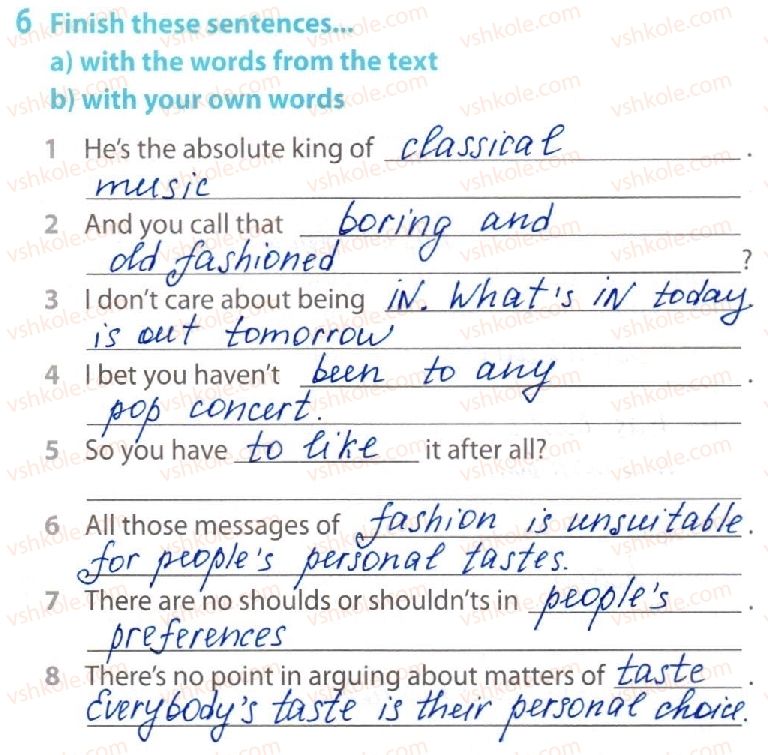 6 Finish these sentences...
a) with the words from the text
b) with your own words
1 He's the absolute king of classical .
music
2 And you call that boring and
old fashioned ?
3 I don't care about being in. What's in today.
is out tomorrow
4 I bet you haven't been to any .
pop concert.
5 So you have to like it after all?
6 All those messages of fashion is unsuitable .
for people's personal tastes.
7 There are no shoulds or shouldn'ts in people's .
preferences
8 There's no point in arguing about matters of taste .
Everybody's taste is their personal choice.